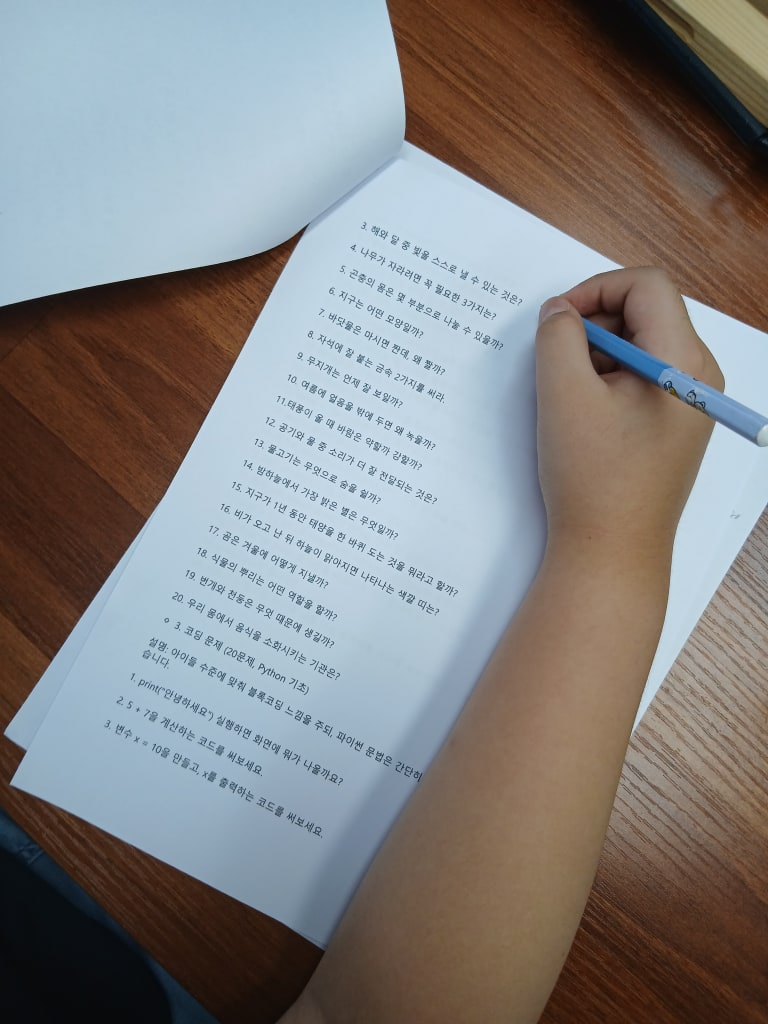 3. 해와 달 중 빛을 스스로 낼 수 있는 것은?
4. 나무가 자라려면 꼭 필요한 3가지는?
5. 곤충의 몸은 몇 부분으로 나눌 수 있을까?
6. 지구는 어떤 모양일까?
7. 바닷물은 마시면 짠데, 왜 짤까?
8. 자석에 잘 붙는 금속 2가지를 써라.
9. 무지개는 언제 잘 보일까?
10. 여름에 얼음을 밖에 두면 왜 녹을까?
11.태풍이 올 때 바람은 약할까 강할까?
12. 공기와 물 중 소리가 더 잘 전달되는 것은?
13. 물고기는 무엇으로 숨을 쉴까?
14. 밤하늘에서 가장 밝은 별은 무엇일까?
15. 지구가 1년 동안 태양을 한 바퀴 도는 것을 뭐라고 할까?
16. 비가 오고 난 뒤 하늘이 맑아지면 나타나는 색깔 띠는?
17. 곰은 겨울에 어떻게 지낼까?
18. 식물의 뿌리는 어떤 역할을 할까?
19. 번개와 천둥은 무엇 때문에 생길까?
20. 우리 몸에서 음식을 소화시키는 기관은?
o 3. 코딩 문제 (20문제, Python 기초)
설명: 아이들 수준에 맞춰 블록코딩 느낌을 주되, 파이썬 문법은 간단히
습니다.
1. print("안녕하세요") 실행하면 화면에 뭐가 나올까요?
2. 5 + 7을 계산하는 코드를 써보세요.
3. 변수 x = 10을 만들고, x를 출력하는 코드를 써보세요.